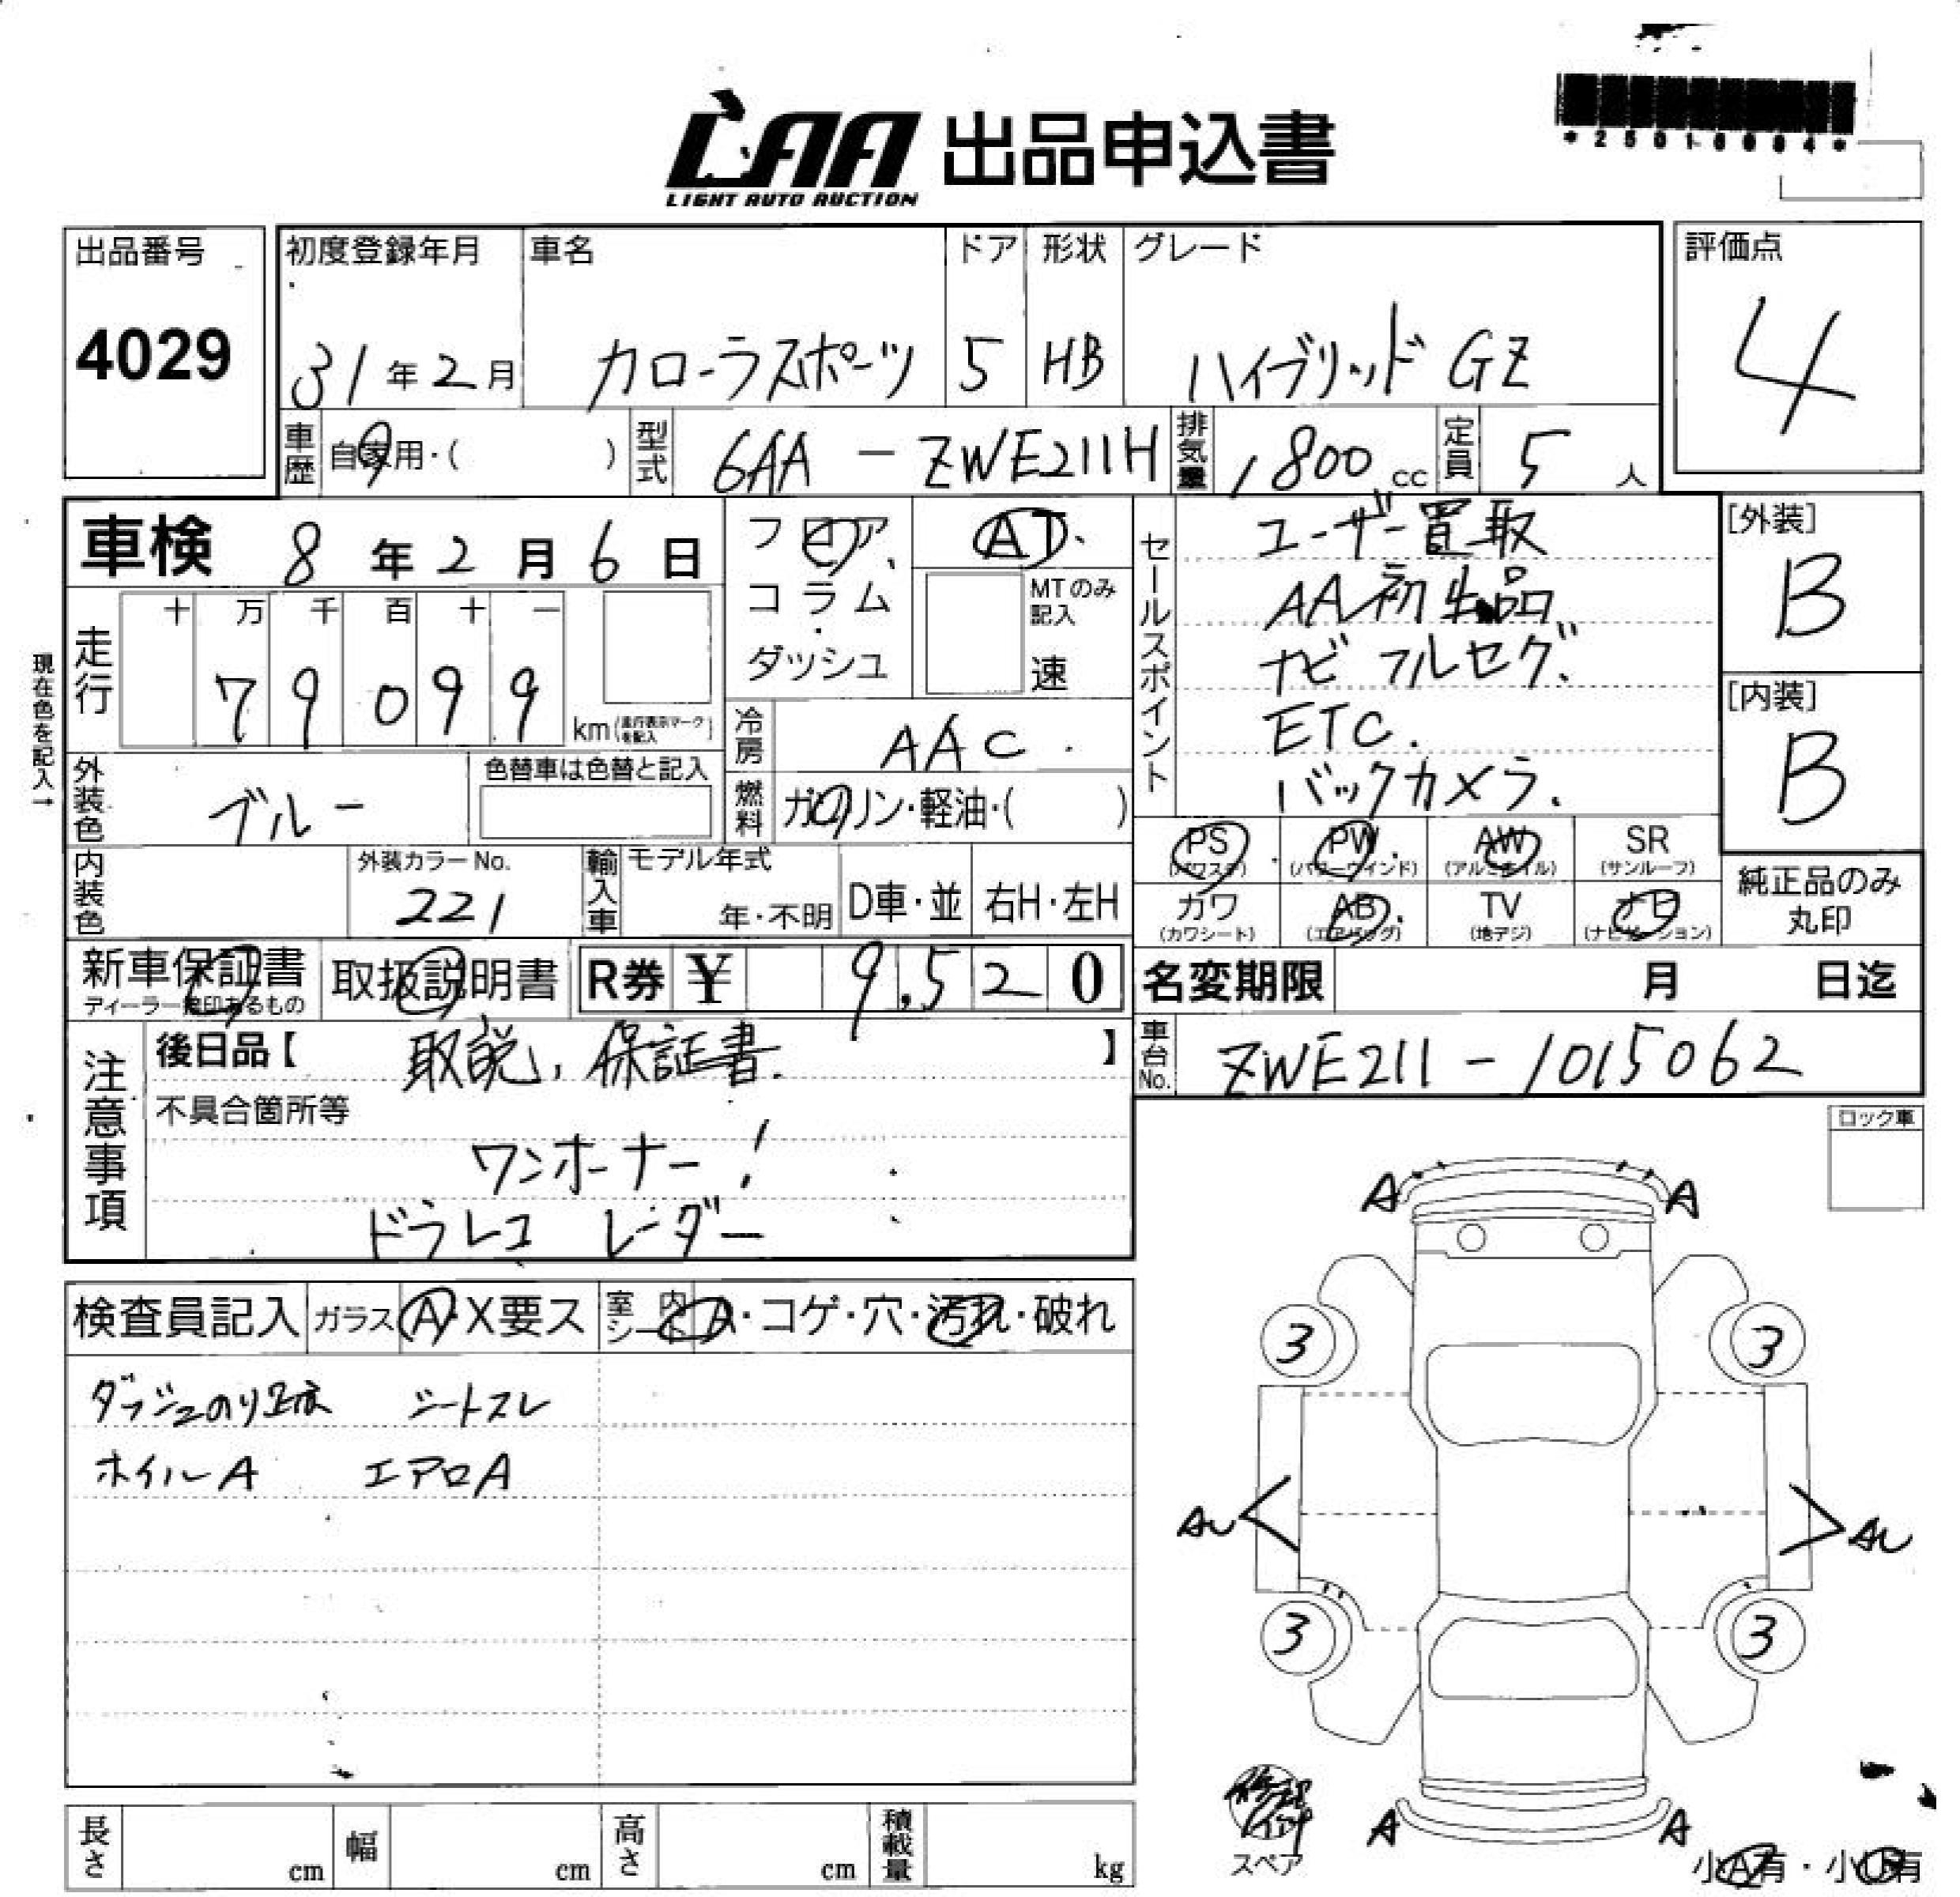 LAA 出品申込書
LIGHT AUTO AUCTION
出品番号
4029
初度登録年月
31年2月
車名
カローラスポーツ
ドア
5
形状
HB
グレード
ハイブリッド GZ
評価点
4
車歴
自家用・( )
型式
6AA - ZWE211H
排気量
1,800 cc
定員
5 人
車検 8年2月6日
フロア
コラム
ダッシュ
AT
MTのみ記入
速
セールスポイント
ユーザー買取
AA初出品
ナビ フルセグ.
ETC.
バックカメラ.
[外装]
B
[内装]
B
現在色を記入→
走行
十 万 千 百 十 一
7 9 0 9 9
km (走行表示マークを記入)
冷房
AAC
外装色
ブルー
色替車は色替と記入
燃料
ガソリン・軽油・( )
PS (パワステ)
PW (パワーウインド)
AW (アルミホイル)
SR (サンルーフ)
カワ (カワシート)
AB (エアバッグ)
TV (地デジ)
ナビ (ナビゲーション)
純正品のみ
丸印
内装色
外装カラーNo.
221
輸入車
モデル年式
年・不明
D車・並
右H・左H
新車保証書
ディーラー捺印あるもの
取扱説明書
R券 ¥ 9,520
名変期限 月 日迄
注意事項
後日品【 取説, 保証書. 】
車台No.
ZWE211-1015062
不具合箇所等
ワンオーナー!
ドラレコ レーダー
ロック車
検査員記入
ガラス A・X要ス
室内シート A・コゲ・穴・汚れ・破れ
シートスレ
ホイルA エアロA
A A
3 3
AU AU
3 3
A A
スペア
小A有・小U有
長さ cm
幅 cm
高さ cm
積載量 kg